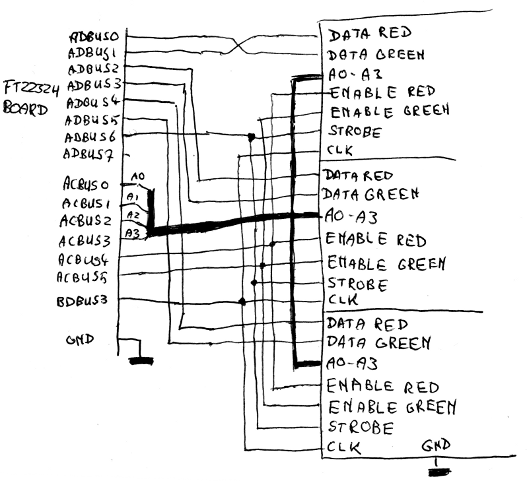 FT2232H
BOARD
ADBUS0
ADBUS1
ADBUS2
ADBUS3
ADBUS4
ADBUS5
ADBUS6
ADBUS7
ACBUS0
ACBUS1
ACBUS2
ACBUS3
ACBUS4
ACBUS5
BDBUS3
GND
A0
A1
A2
A3
DATA RED
DATA GREEN
A0-A3
ENABLE RED
ENABLE GREEN
STROBE
CLK
DATA RED
DATA GREEN
A0-A3
ENABLE RED
ENABLE GREEN
STROBE
CLK
DATA RED
DATA GREEN
A0-A3
ENABLE RED
ENABLE GREEN
STROBE
CLK
GND